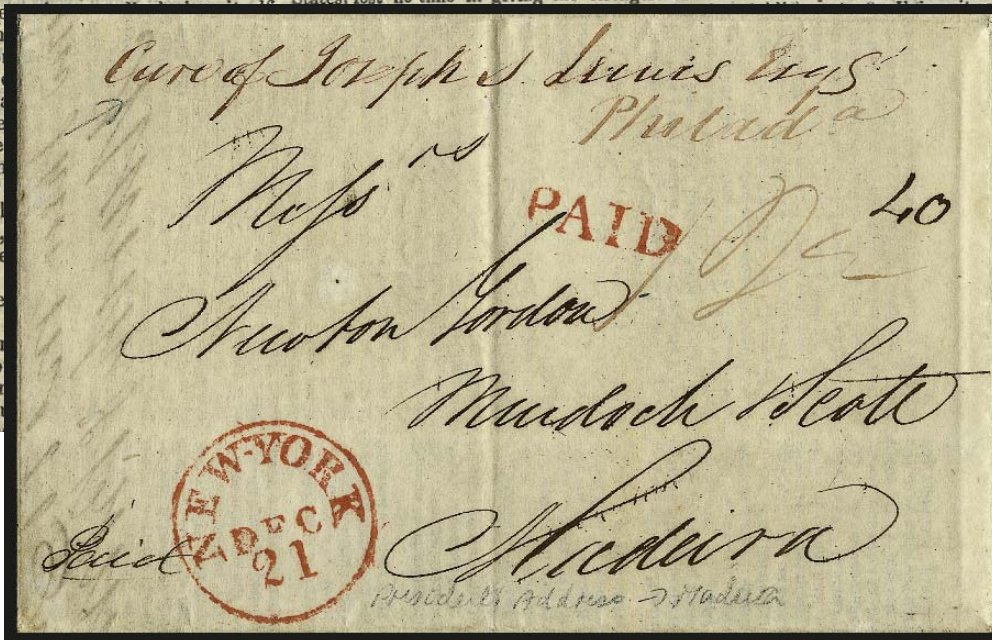 Care of Joseph S. Lewis Esqr
Philada
Messrs
PAID
40
Newton Gordon
Murdoch & Scott
NEW-YORK
DEC
21
Paid
Madeira
President's Address → Madeira